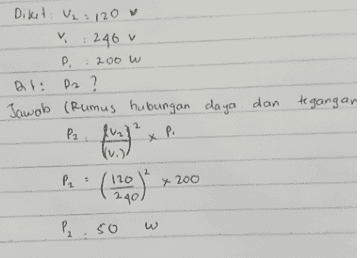 Diket : V₂ = 120 v
V₁ : 246 v
P₁ : 200 W
Dit : P2 ?
Jawab (Rumus hubungan daya dan tegangan
P₂ : (V₂)² / (V₁) × P₁
P₂ = (120 / 240)² × 200
P₂ : 50 W